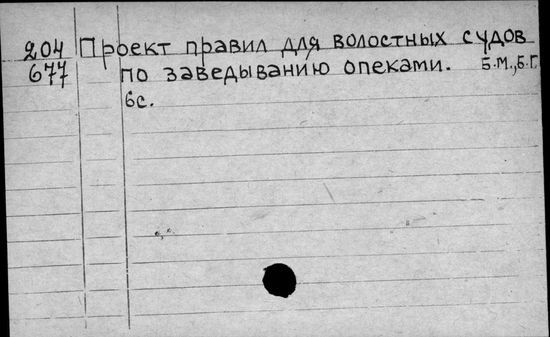 204 Проект правил для волостных судов
677 по заведыванию опеками. Б.М., Б.Г.
6с.